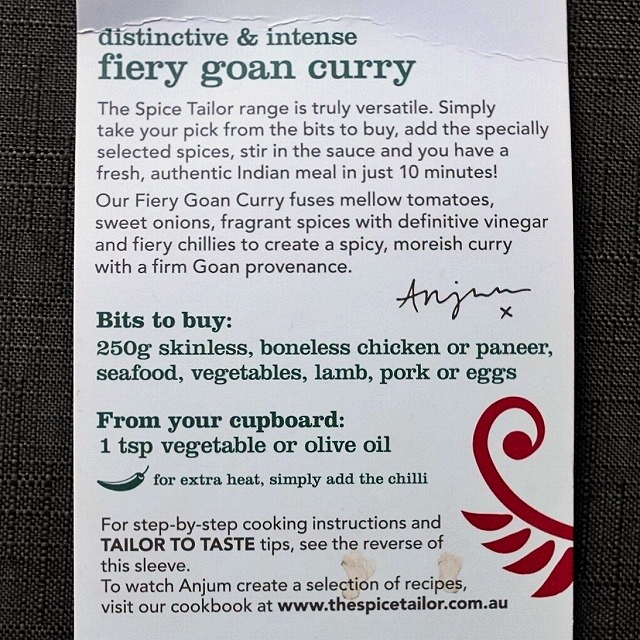 distinctive & intense
fiery goan curry
The Spice Tailor range is truly versatile. Simply
take your pick from the bits to buy, add the specially
selected spices, stir in the sauce and you have a
fresh, authentic Indian meal in just 10 minutes!
Our Fiery Goan Curry fuses mellow tomatoes,
sweet onions, fragrant spices with definitive vinegar
and fiery chillies to create a spicy, moreish curry
with a firm Goan provenance.
Anjum
x
Bits to buy:
250g skinless, boneless chicken or paneer,
seafood, vegetables, lamb, pork or eggs
From your cupboard:
1 tsp vegetable or olive oil
for extra heat, simply add the chilli
For step-by-step cooking instructions and
TAILOR TO TASTE tips, see the reverse of
this sleeve.
To watch Anjum create a selection of recipes,
visit our cookbook at www.thespicetailor.com.au